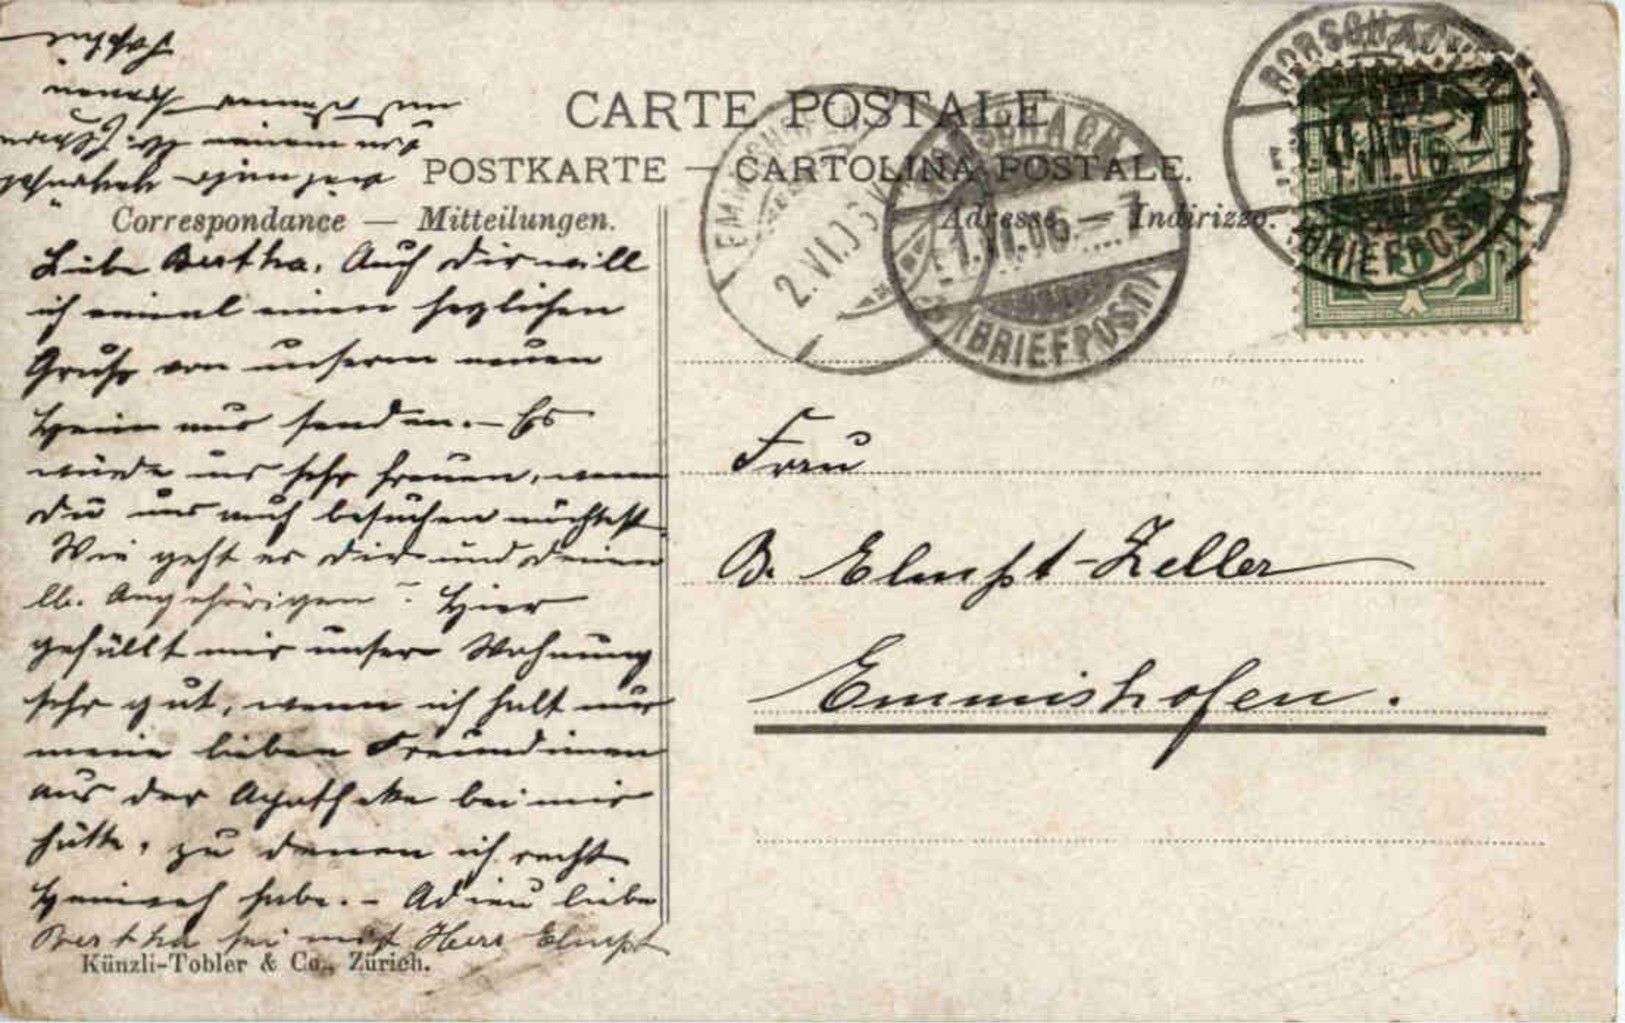 CARTE POSTALE
POSTKARTE — CARTOLINA POSTALE.
Correspondance — Mitteilungen.
Adresse — Indirizzo.
RORSCHACH
1.VI.06.–7
(BRIEFPOST)
EMMISHOFEN
2.VI.06
RORSCHACH
1.VI.06.–7
(BRIEFPOST)
Liebe Bertha. Auch Dir will
ich einmal einen herzlichen
Gruß von unserem neuen
Heim aus senden. – Es
würde uns sehr freuen, wenn
Du uns auch besuchen möchtest.
Wie geht es Dir und Deinen
lb. Angehörigen? Hier
gefällt mir unsere Wohnung
sehr gut, wenn ich halt nur
meine lieben Freundinnen
aus der Apotheke bei mir
hätte, zu denen ich recht
Heimweh habe. – Adieu liebe
Bertha sei mit Herr
von meinem
Sophie
Frau
B. -Zeller
Emmishofen.
Künzli-Tobler & Co., Zürich.